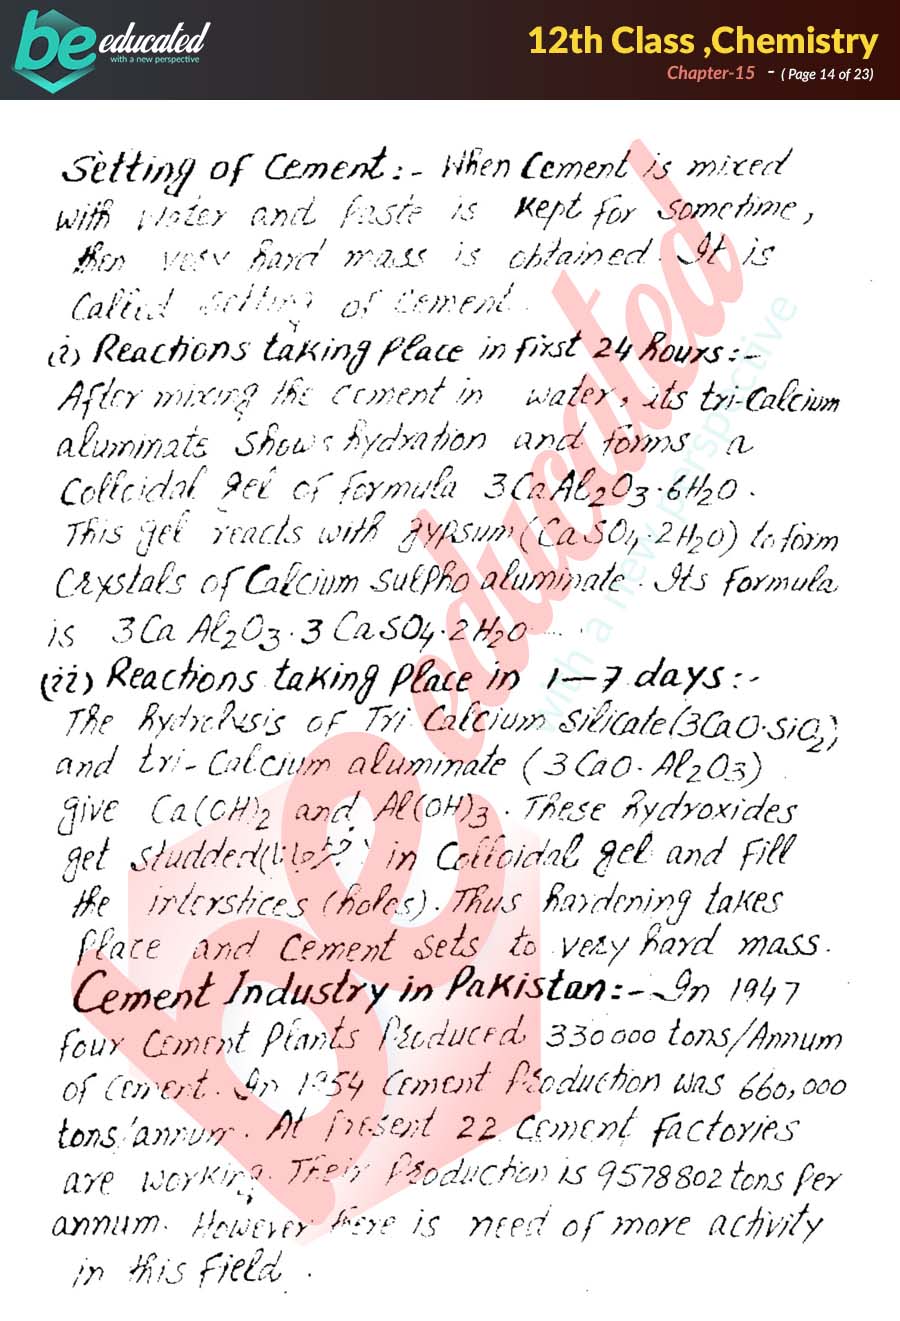 be educated
with a new perspective
12th Class ,Chemistry
Chapter-15 - ( Page 14 of 23)
Setting of Cement:- When Cement is mixed
with Water and Paste is Kept for sometime,
then very hard mass is obtained. It is
Called setting of Cement.
(i) Reactions taking Place in first 24 hours:-
After mixing the cement in water, its tri-Calcium
aluminate Shows hydration and forms a
Colloidal gel of formula 3CaAl2O3·6H2O.
This gel reacts with gypsum (CaSO4·2H2O) to form
Crystals of Calcium Sulpho aluminate. Its Formula
is 3Ca Al2O3·3 CaSO4·2H2O
(ii) Reactions taking Place in 1-7 days:-
The hydrolysis of Tri Calcium Silicate (3CaO·SiO2)
and tri-Calcium aluminate (3CaO·Al2O3)
give Ca(OH)2 and Al(OH)3. These hydroxides
get studded in Colloidal gel and Fill
the interstices (holes). Thus hardening takes
Place and Cement sets to very hard mass.
Cement Industry in Pakistan:- In 1947
four Cement Plants Produced 330000 tons/Annum
of Cement. In 1954 Cement Production was 660,000
tons/annum. At Present 22 Cement factories
are working. Their Production is 9578802 tons Per
annum. However there is need of more activity
in this Field.
be educated
with a new perspective